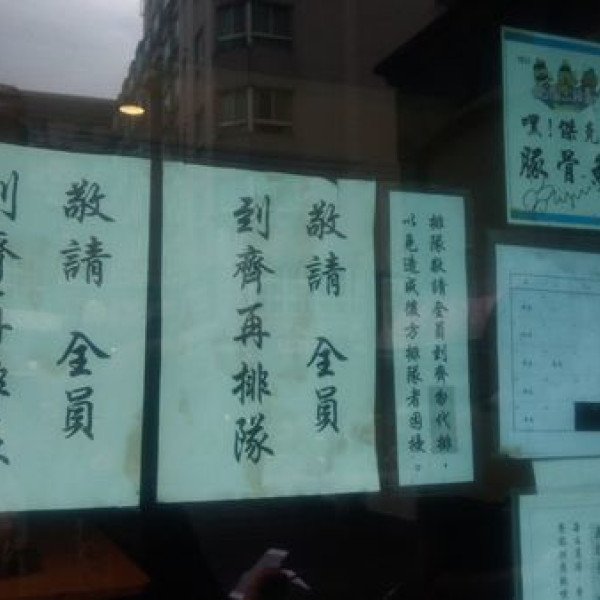 敬請 全員
到齊再排隊
敬請 全員
到齊再排隊
排隊敬請全員到齊勿代排，
以免造成後方排隊者困擾。
嘿！傑克
豚骨